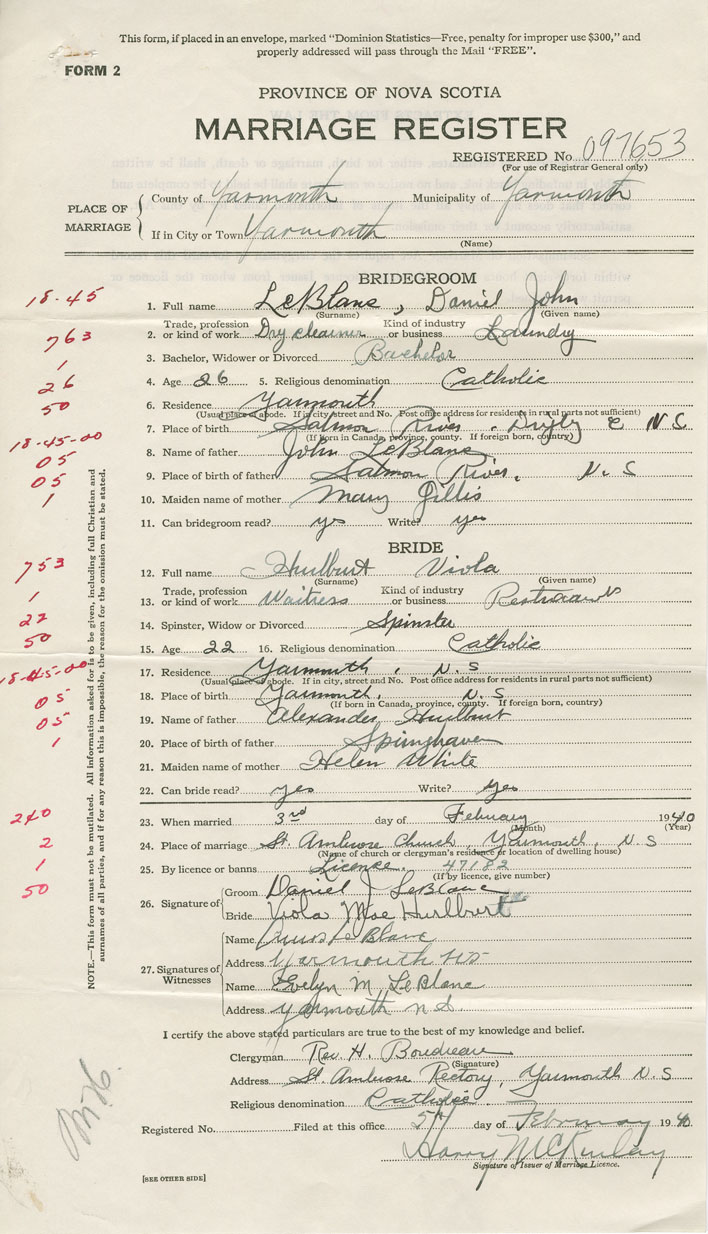 This form, if placed in an envelope, marked "Dominion Statistics—Free, penalty for improper use $300," and
properly addressed will pass through the Mail "FREE".
FORM 2
PROVINCE OF NOVA SCOTIA
MARRIAGE REGISTER
REGISTERED No 097653
(For use of Registrar General only)
PLACE OF MARRIAGE
County of Yarmouth Municipality of Yarmouth
If in City or Town Yarmouth
(Name)
BRIDEGROOM
18-45
1. Full name LeBlanc, Daniel John
(Surname) (Given name)
763
2. Trade, profession or kind of work Dry cleaner Kind of industry or business Laundry
1
3. Bachelor, Widower or Divorced Bachelor
26
4. Age 26 5. Religious denomination Catholic
50
6. Residence Yarmouth
(Usual place of abode. If in city, street and No. Post office address for residents in rural parts not sufficient)
18-45-00
7. Place of birth Salmon River, Digby C N S
(If born in Canada, province, county. If foreign born, country)
05
8. Name of father John LeBlanc
05
9. Place of birth of father Salmon River, N. S
1
10. Maiden name of mother Mary Gillis
11. Can bridegroom read? yes Write? yes
BRIDE
753
12. Full name Hurlburt Viola
(Surname) (Given name)
1
13. Trade, profession or kind of work Waitress Kind of industry or business
22
14. Spinster, Widow or Divorced Spinster
50
15. Age 22 16. Religious denomination Catholic
18-45-00
17. Residence Yarmouth, N. S
(Usual place of abode. If in city, street and No. Post office address for residents in rural parts not sufficient)
05
18. Place of birth Yarmouth, N. S
(If born in Canada, province, county. If foreign born, country)
05
19. Name of father Alexander Hurlburt
1
20. Place of birth of father Springhaven
21. Maiden name of mother Helen White
22. Can bride read? yes Write? yes
240
23. When married 3rd day of February 1940
(Month) (Year)
2
24. Place of marriage St. Ambrose Church, Yarmouth, N. S
(Name of church or clergyman's residence or location of dwelling house)
1
25. By licence or banns Licence. 47182
(If by licence, give number)
50
26. Signature of
Groom Daniel J LeBlanc
Bride Viola Mae Hurlburt
27. Signatures of Witnesses
Name Amos LeBlanc
Address Yarmouth NS
Name Evelyn M. LeBlanc
Address Yarmouth n.s.
I certify the above stated particulars are true to the best of my knowledge and belief.
Clergyman Rev. H. Boudreau
(Signature)
Address St. Ambrose Rectory, Yarmouth N. S
Religious denomination Catholic
Registered No. Filed at this office 5th day of February 1940
Harry McKinlay
Signature of Issuer of Marriage Licence.
[SEE OTHER SIDE]
NOTE.—This form must not be mutilated. All information asked for is to be given, including full Christian and
surnames of all parties, and if for any reason this is impossible, the reason for the omission must be stated.